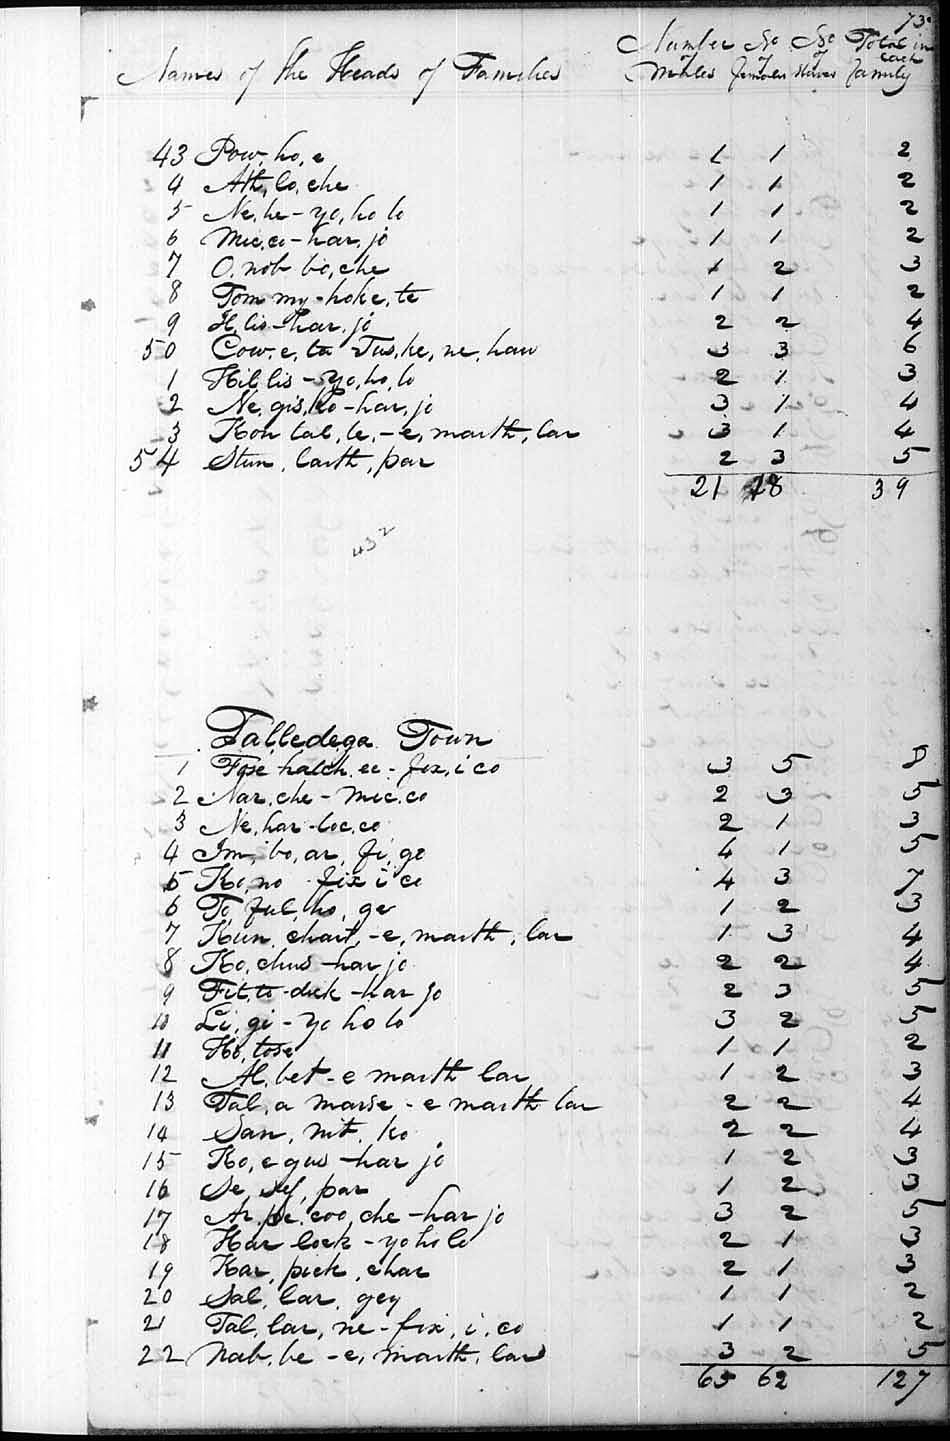 73
Number No No Total in
of of of each
Names of the Heads of Families Males females Slaves family
43 Pow, ho, e 1 1 2
4 Ath, lo, che 1 1 2
5 Ne, he - yo, ho lo 1 1 2
6 Mic, co - har, jo 1 1 2
7 O, nob bo, che 1 2 3
8 Tom my - hoke, te 1 1 2
9 H, lis - har, jo 2 2 4
50 Cow, e, ta Tus, ke, ne, haw 3 3 6
1 Hil, lis - yo, ho, lo 2 1 3
2 Ne, gis, ho - har, jo 3 1 4
3 Kon tal, le, - e, marth, lar 3 1 4
54 Stun, larth, par 2 3 5
21 18 39
432
Talledega Town
1 Fose hatch, ee - fix, i co 3 5 8
2 Nar, che - mic, co 2 3 5
3 Ne, har - loc, co 2 1 3
4 Im, bo, ar, fi, ge 4 1 5
5 Ko, no fix i co 4 3 7
6 To, ful, ho, ge 1 2 3
7 Kun, chart, - e, marth, lar 1 3 4
8 Ko, chus - har jo 2 2 4
9 Fit, to - dick - har jo 2 3 5
10 Li, gi - yo ho lo 3 2 5
11 Ho, tose 1 1 2
12 Al, bet - e marth lar 1 2 3
13 Tal, a marse - e marth lar 2 2 4
14 San, nit, ko 2 2 4
15 Ko, e gus - har jo 1 2 3
16 Se, sef, par 1 2 3
17 Ar, pe, coo, che - har jo 3 2 5
18 Har lock - yo ho lo 2 1 3
19 Kar, pick, char 2 1 3
20 Sal, lar, gey 1 1 2
21 Tal, lar, ne - fix, i, co 1 1 2
22 Nab, be - e, marth, lar 3 2 5
65 62 127